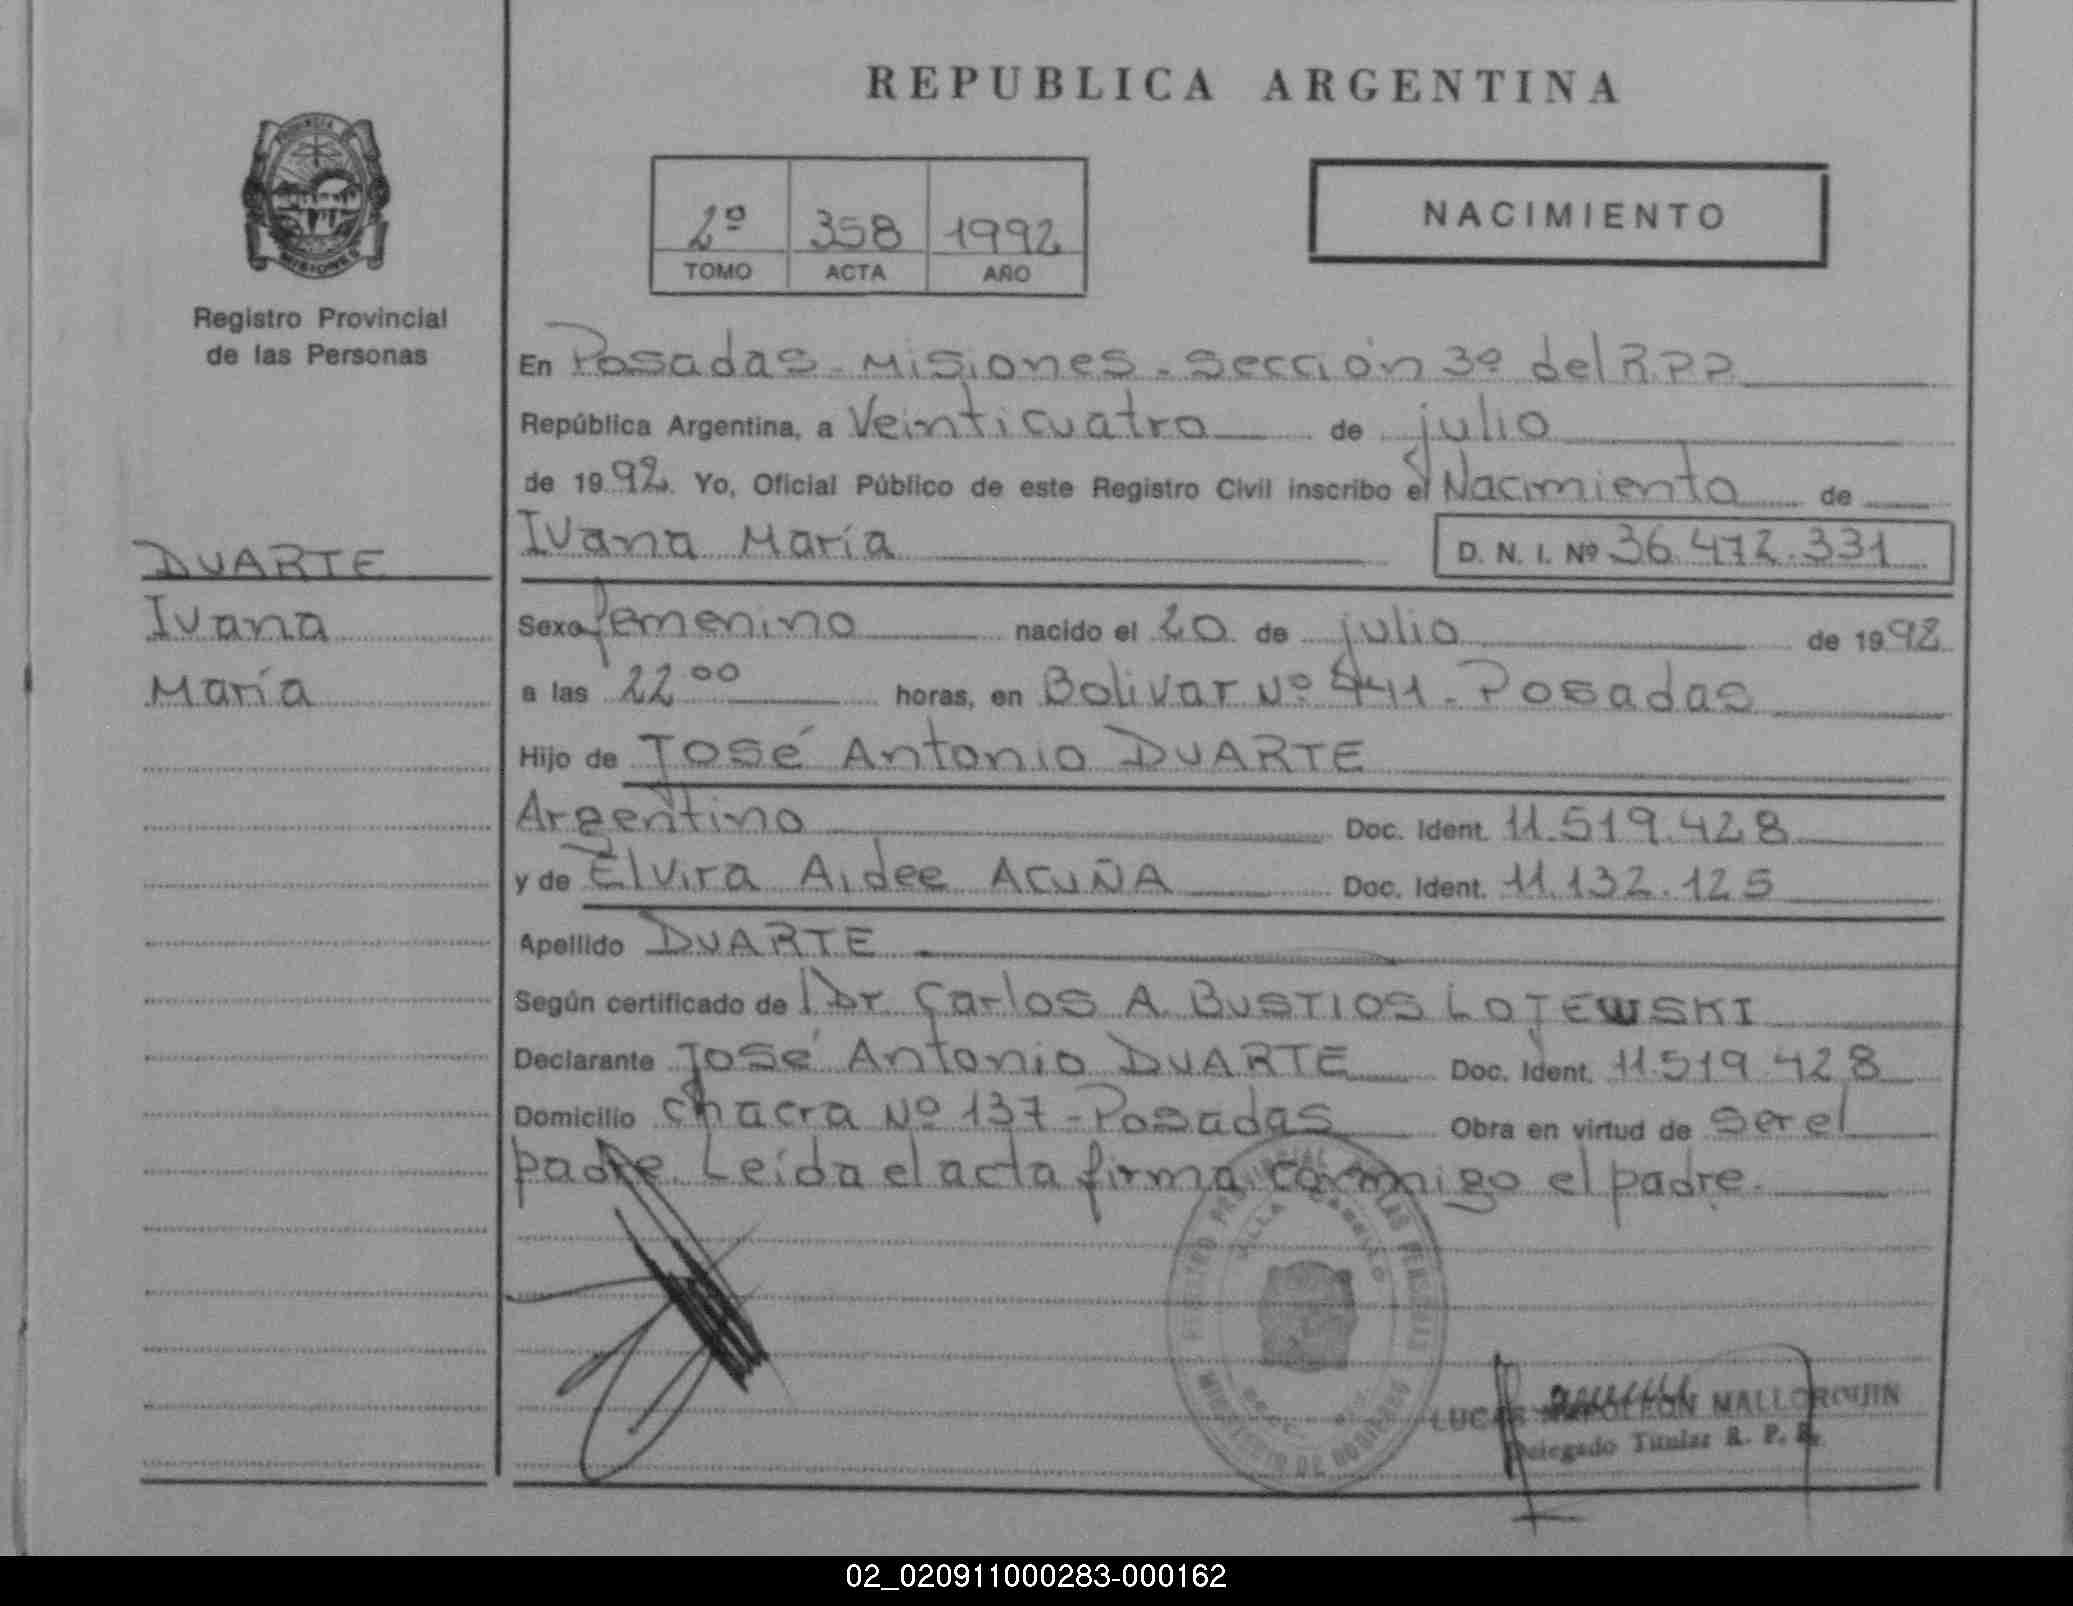 REPUBLICA ARGENTINA
PROVINCIA DE
MISIONES
Registro Provincial
de las Personas
2º 358 1992
TOMO ACTA AÑO
NACIMIENTO
En Posadas - Misiones - Sección 3º del R.P.P.
República Argentina, a Veinticuatro de julio
de 1992. Yo, Oficial Público de este Registro Civil inscribo el Nacimiento de
Ivana María D. N. I. Nº 36.472.331
DUARTE
Ivana
María
Sexo femenino nacido el 20 de julio de 1992
a las 22 00 horas, en Bolivar Nº 441 - Posadas
Hijo de José Antonio DUARTE
Argentino Doc. Ident. 11.519.428
y de Elvira Aidee ACUÑA Doc. Ident. 11.132.125
Apellido DUARTE
Según certificado de Dr. Carlos A. BUSTIOS LOJEWSKI
Declarante José Antonio DUARTE Doc. Ident. 11.519.428
Domicilio chacra Nº 137 - Posadas Obra en virtud de ser el
padre. Leída el acta firma conmigo el padre.
REGISTRO PROVINCIAL DE LAS PERSONAS
VILLA
MINISTERIO DE GOBIERNO
LUCAS NAPOLEON MALLORQUIN
Delegado Titular R. P. P.
02_020911000283-000162